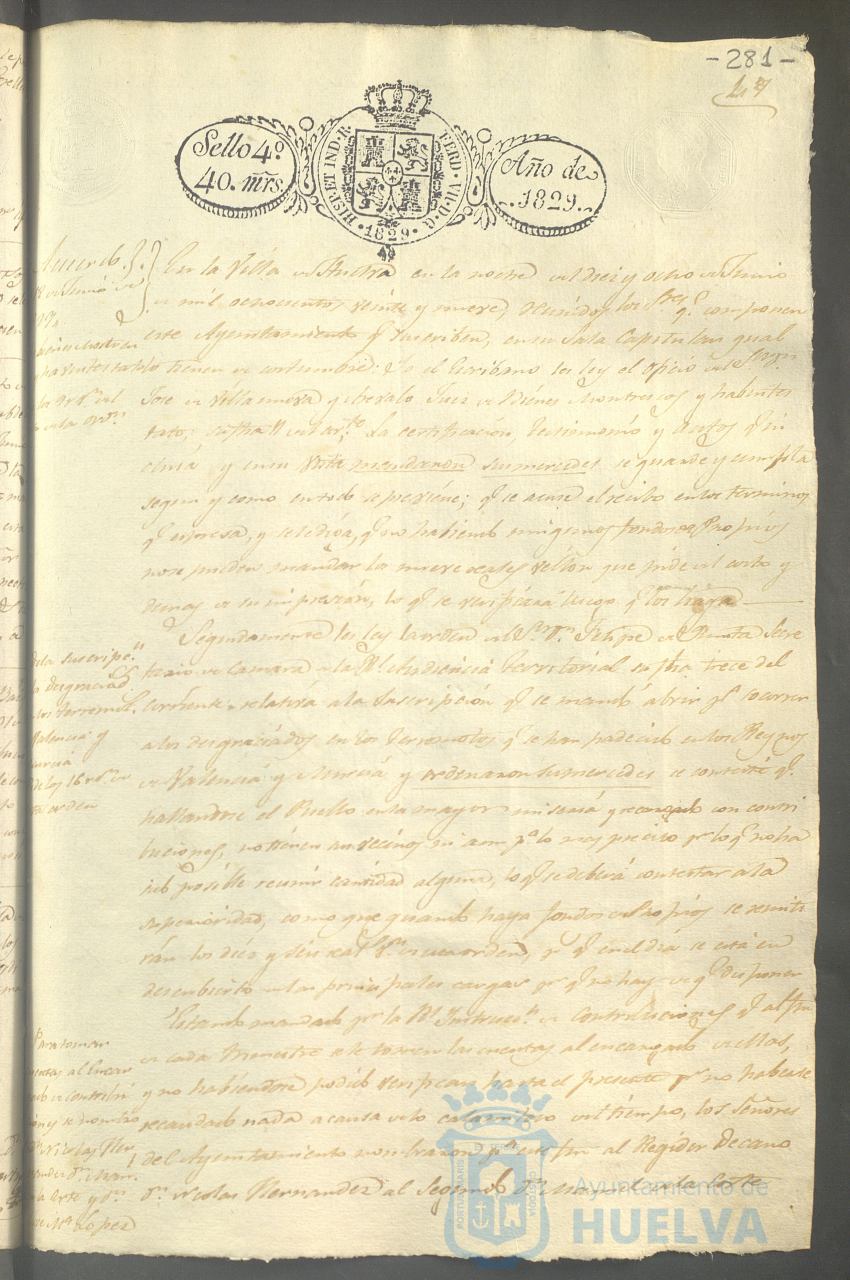 - 281 -
47
Sello 4º
40. mrs.
HISP. ET IND. R. FERD. VII. D. G. 1829
Año de
1829.
En la Villa de Huelva en la noche del diez y ocho de Junio
de mil ochocientos veinte y nueve, reunidos los Sres. q. componen
este Ayuntamiento q. suscriben, en su Sala Capitular qual
lo tienen de costumbre: Yo el Escribano les ley el oficio del
José de Villanueva y Arevalo Juez de Bienes Mostrencos y Abintes
tato, su fha 11 del La certificación, testimonio y autos q. in
cluia, y en su Vista mandaron sus mercedes se guarde y cumpla
segun y como en todo se previene; q. se acuse el recibo en los terminos
q. expresa, y se le diga, q. no habiendo ningunos fondos de Propios
no se pueden mandar los nueve reales vellon que pide del costo y
demas de su impresión, lo q. se verificará luego q. los haya
Segundamente les ley la orden del Sr. Dn. Felipe Secre
tario de Camara de la Rl. Audiencia Territorial su fha trece del
corriente, relativa a la suscripción q. se mandó abrir pa. socorrer
a los desgraciados en los terremotos q. se han padecido en los Reynos
de Valencia y Murcia y ordenaron sus mercedes se conteste q.
hallandose el Pueblo en la mayor miseria y recargado con contri
buciones, no tienen sus vecinos ni aun pa. lo mas preciso por lo q. no ha
sido posible reunir cantidad alguna, lo q. se deberá contestar a la
superioridad, como que quando haya fondos de Propios se remiti
rán los diez y seis rs. vn. de esta orden, pr. q. en el dia se está en
descubierto en las principales cargas pr. q. no hay de q. disponer
Estando mandado pr. la Rl. Instruccn. de Contribuciones q. al fin
de cada trimestre se le tomen las cuentas al encargado de ellas,
y no habiendose podido verificar hasta el presente pr. no haberse
recaudado nada a causa de lo calamitoso del tiempo, los Señores
del Ayuntamiento nombraron pa. este fin al Regidor Decano
Dn. Nicolas Hernandez al Segundo Dn. Manuel de la Corte
de la suscripn.
a desgraciads.
en los terremots.
Valencia y
Murcia
Para tomar
cuentas al Encar
gado de contribu
ciones y se nombro
Dn. Nicolas Her
nandez Dn. Man.
de la Corte y Dn.
López
Ayuntamiento de
HUELVA